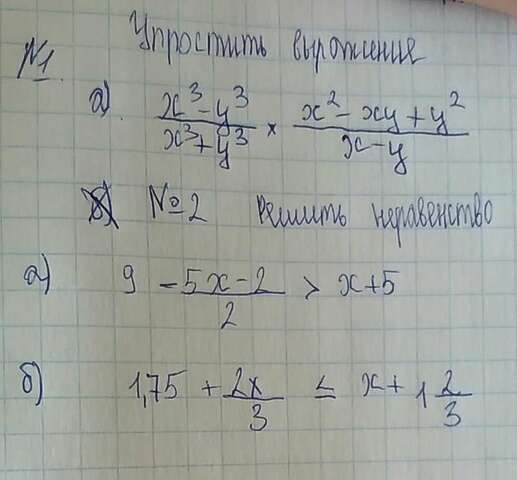 Упростить выражение
№1.
а) x³-y³/x³+y³ × x²-xy+y²/x-y
б) №2 Решить неравенство
а) 9 - 5x-2/2 > x+5
б) 1,75 + 2x/3 ≤ x+ 1 2/3